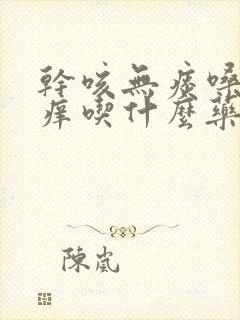 幹咳無痰嗓
痒喫什麼藥
陳嵐